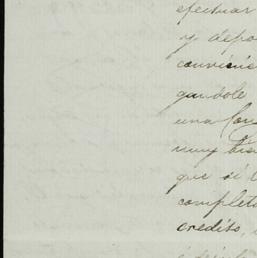 efectuar
y depo
convinie
gandole
una Con
muy bien
que si
completa
credito,